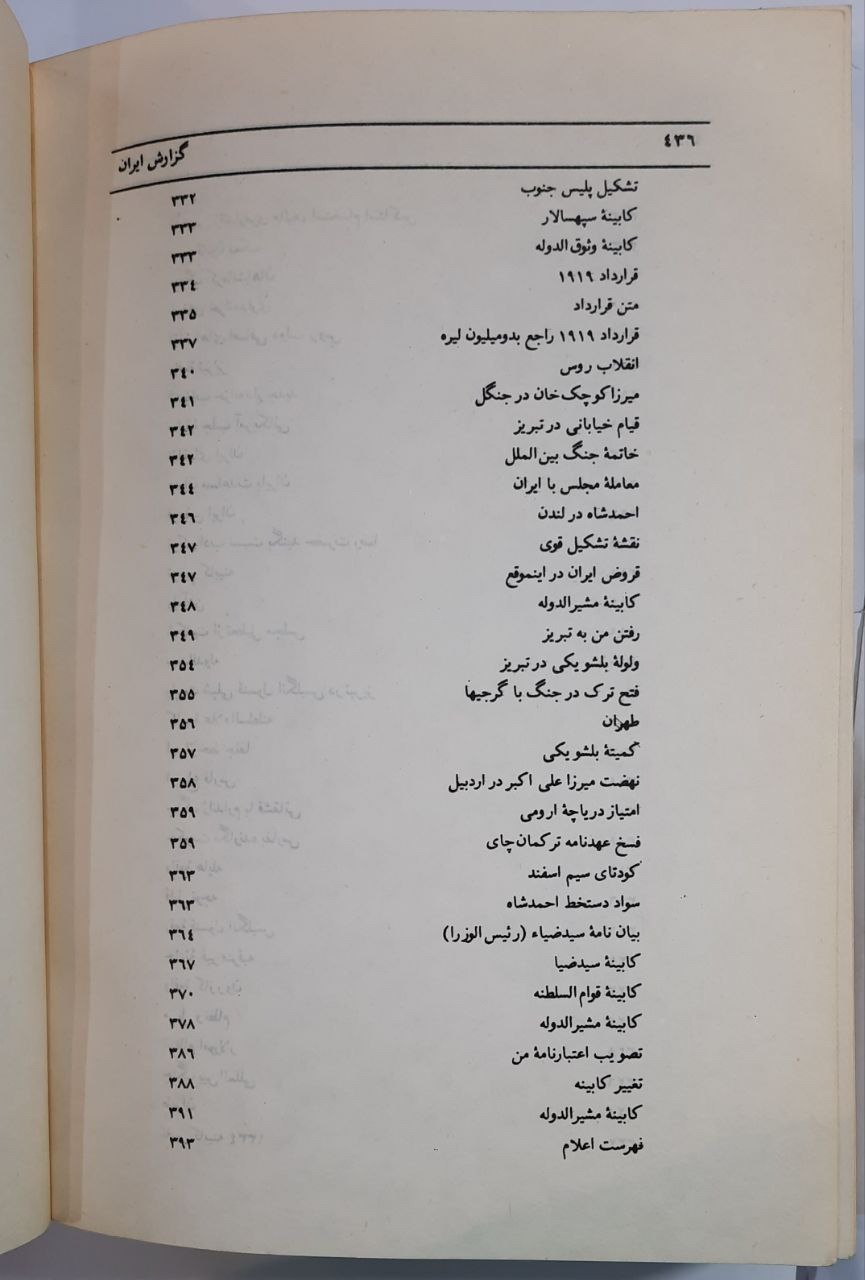 ٤٣٦ گزارش ایران
تشکیل پلیس جنوب ٣٣٢
کابینهٔ سپهسالار ٣٣٣
کابینهٔ وثوق‌الدوله ٣٣٣
قرارداد ١٩١٩ ٣٣٤
متن قرارداد ٣٣٥
قرارداد ١٩١٩ راجع بدومیلیون لیره ٣٣٧
انقلاب روس ٣٤٠
میرزاکوچک‌خان در جنگل ٣٤١
قیام خیابانی در تبریز ٣٤٢
خاتمهٔ جنگ بین‌الملل ٣٤٢
معاملهٔ مجلس با ایران ٣٤٤
احمدشاه در لندن ٣٤٦
نقشهٔ تشکیل قوی ٣٤٧
قروض ایران در اینموقع ٣٤٧
کابینهٔ مشیرالدوله ٣٤٨
رفتن من به تبریز ٣٤٩
ولولهٔ بلشویکی در تبریز ٣٥٤
فتح ترک در جنگ با گرجیها ٣٥٥
طهران ٣٥٦
کمیتهٔ بلشویکی ٣٥٧
نهضت میرزا علی اکبر در اردبیل ٣٥٨
امتیاز دریاچهٔ ارومی ٣٥٩
فسخ عهدنامه ترکمان‌چای ٣٥٩
کودتای سیم اسفند ٣٦٣
سواد دستخط احمدشاه ٣٦٣
بیان نامهٔ سیدضیاء (رئیس‌الوزرا) ٣٦٤
کابینهٔ سیدضیا ٣٦٧
کابینهٔ قوام‌السلطنه ٣٧٠
کابینهٔ مشیرالدوله ٣٧٨
تصویب اعتبارنامهٔ من ٣٨٦
تغییر کابینه ٣٨٨
کابینهٔ مشیرالدوله ٣٩١
فهرست اعلام ٣٩٣